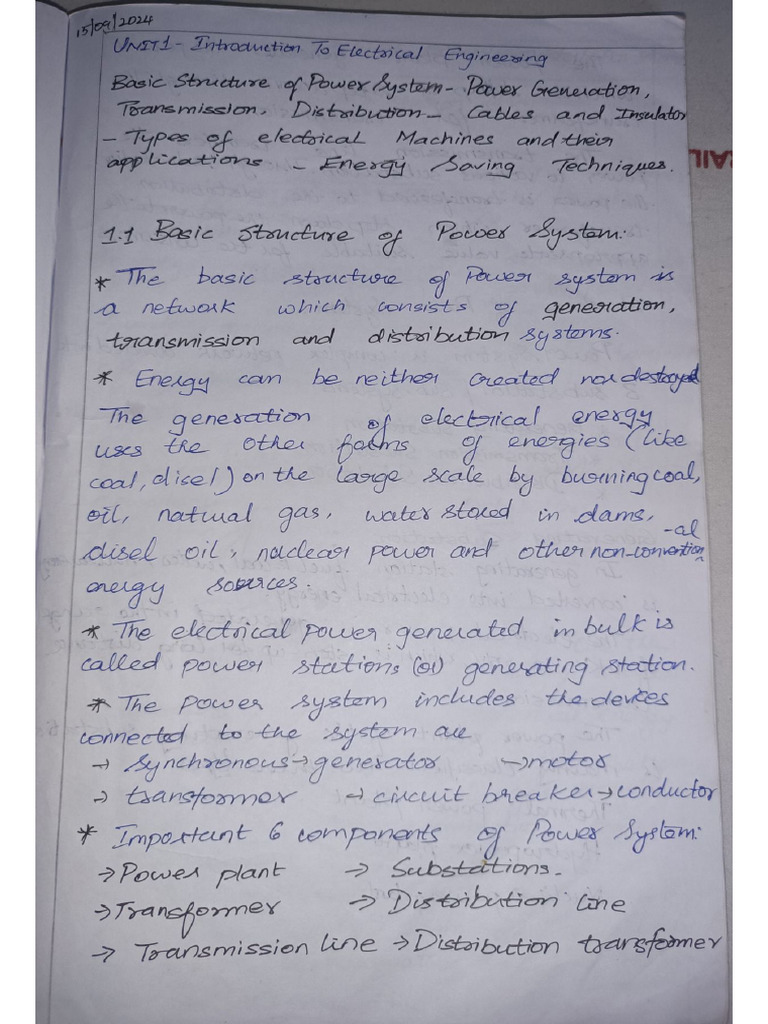 15/09/2024
UNIT1 - Introduction To Electrical Engineering
Basic Structure of Power System - Power Generation,
Transmission, Distribution - Cables and Insulator
- Types of electrical Machines and their
applications - Energy Saving Techniques.
1.1 Basic Structure of Power System:
* The basic structure of Power system is
a network which consists of generation,
transmission and distribution systems.
* Energy can be neither created nor destroyed
The generation of electrical energy
uses the other forms of energies (like
coal, disel) on the large scale by burning coal,
oil, natural gas, water stored in dams,
disel oil, nuclear power and other non-convention-al
energy sources.
* The electrical power generated in bulk is
called power stations (or) generating station.
* The power system includes the devices
connected to the system are
→ synchronous → generator → motor
→ transformer → circuit breaker → conductor
* Important 6 components of Power System:
→ Power plant → Substations.
→ Transformer → Distribution line
→ Transmission line → Distribution transformer